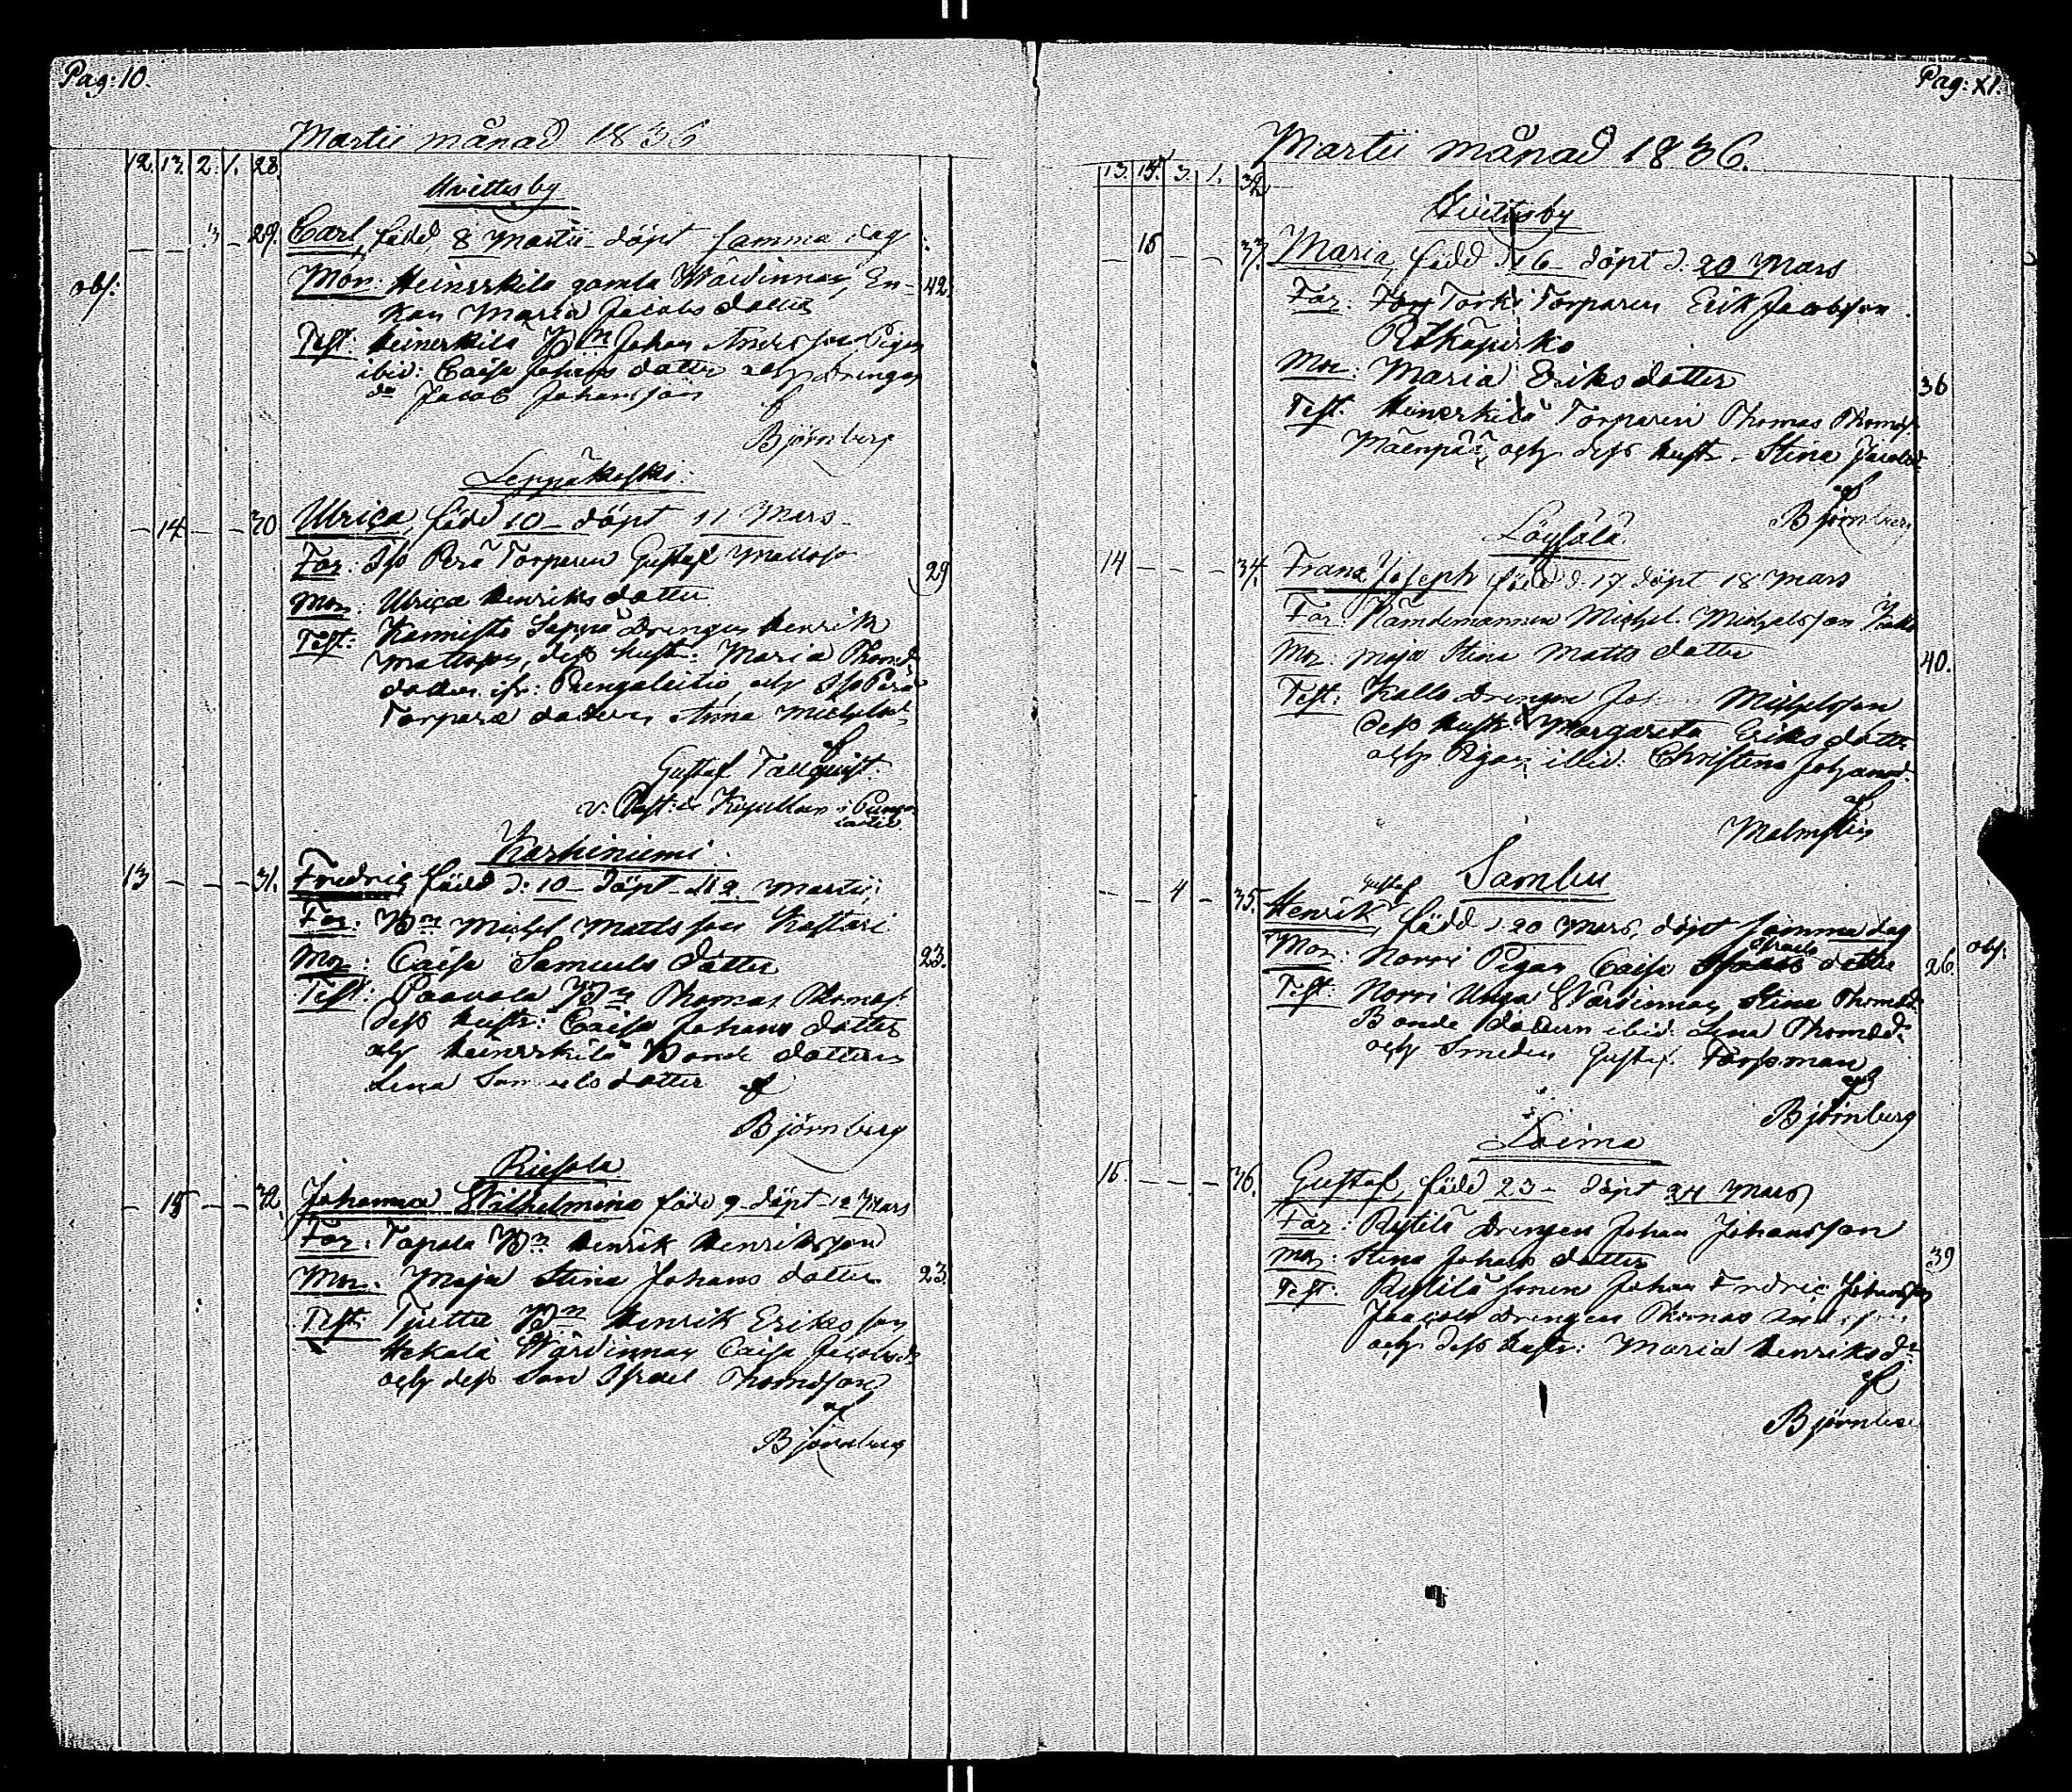 Pag: 10.
Martii månad 1836
12. 13. 2. 1. 28.
Hvittisby
— — 3 — 29. Carl, född 8 Martii döpt samma dag
obs: Mor: Heinerkila gamla Wärdinnan, En- 42.
kan Maria Jacobs dotter
Test: Heinerkila Bn Johan Anderson Pigan
ibid: Caisa Johans dotter och drengen
do Jacob Johansson
af
Björnberg
Leppäkoski.
— 14 — — 30 Ulrica, född 10 döpt 11 Mars
Far: Iso Perä Torparen Gustaf Mattss 29
Mor: Ulrica Henriks dotter
Test: Kannisto Seppä Drengen Henrik
Mattsson, dess hustr: Maria Thomæ
dotter ifr: Pungalaitio och Iso Perä
Torpare dottern Anna Michelsd
af
Gustaf Tallquist.
v: Past: & Kapellan i Punga-
laitio.
Karhiniemi.
13 — — — 31. Fredric, född d: 10 döpt d 12. Martii,
Far: Bn Michel Mattsson Kastari
Mor: Caisa Samuels dotter 23.
Test: Paavola Bn Thomas Thomas:
dess hustr: Caisa Johans dotter
och Heinerkilä Bonde dottern
Lena Samuels dotter af
Björnberg
Riesola
— 15 — — 32. Johanna Wilhelmina född 9 döpt 12 Mars
Far: Tapala Bn Henrik Henriksson
Mor: Maja Stina Johans dotter 23.
Test: Tjutta Bn Henrik Eriksson
Hekala Wärdinnan Caisa Jacobsdr
och dess Son Israel Thomasson
af
Björnberg
Pag: XI.
Martii månad 1836.
13. 15. 3. 1. 32
Hvittisby
— 16 — — 33. Maria, född d 16 döpt d. 20 Mars
Far: Torki Torparen Erik Jacobsson
Pitkäpirko
Mor: Maria Eriks dotter 36
Test. Heinerkilä Torparen Thomas Thomass
Mäenpää, och dess hustr. Stina Jacobsd
af
Björnberg
Löysälä
14 — — — 34. Frans Joseph född d. 17 döpt 18 Mars
Far: Nämdemannen Michel Michelsson
Mor: Maja Stina Matts dotter 40.
Test: Kallo Drengen Joh Michelsson
dess hustr: Margareta Eriks dotter
och Pigan ibid: Christina Johansd:
af
Sambu
— — 4 — 35. Henrik Gustaf, född d 20 Mars, döpt samma dag
Mor: Norri Pigan Caisa Israels dotter 26. obs:
Test: Norri Unga Wärdinnan Stina Thomædr
Bonde dottern ibid: Lena Thomædr
och Smeden Gustaf Forssman
af
Björnberg
Loima
15. — — — 36. Gustaf, född 23 döpt 24 Mars
Far: Rytilä Drengen Johan Johansson
Mor: Stina Johans dotter 39
Test: Rytilä Sonen Johan Fredric Johansson
Drengen Thomas
och dess hustr: Maria Henriksdr
af
Björnberg